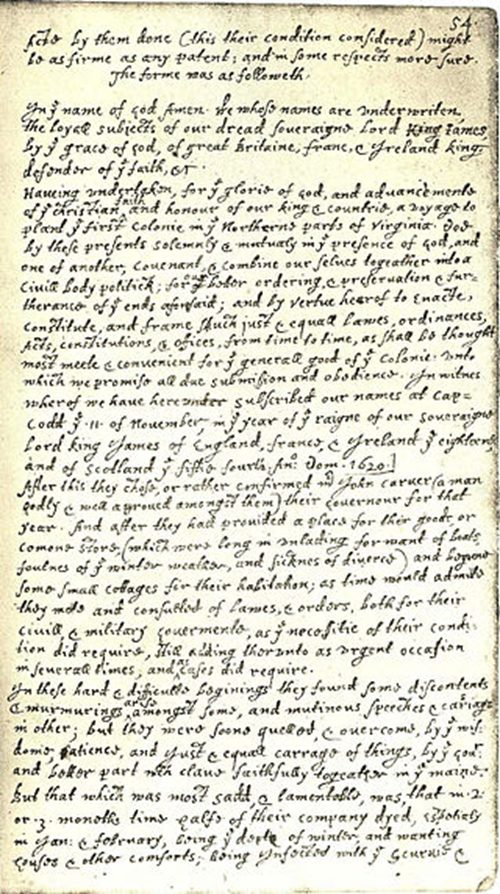 54
Acts by them done (this their condition considered) might
be as firme as any patent; and in some respects more sure.
The forme was as followeth.
In yͤ name of god Amen. We whose names are underwriten,
the loyall subjects of our dread soveraigne Lord King James,
by yͤ grace of God, of great Britaine, franc, & Ireland king,
defender of yͤ faith, &c.
Haveing undertaken, for yͤ glorie of God, and advancemente
of yͤ christian faith and honour of our king & countrie, a voyage to
plant yͤ first colonie in yͤ Northerne parts of Virginia. Doe
by these presents solemnly & mutualy in yͤ presence of God, and
one of another, covenant, & combine our selves togeather into a
Civill body politick; for our better ordering, & preservation & fur=
therance of yͤ ends aforesaid; and by vertue hearof to enacte,
constitute, and frame such just & equall lawes, ordinances,
Acts, constitutions, & offices, from time to time, as shall be thought
most meete & convenient for yͤ generall good of yͤ Colonie: unto
which we promise all due submission and obedience. In witnes
wherof we have hereunder subscribed our names at Cap=
Codd yͤ .11. of November, in yͤ year of yͤ raigne of our soveraigne
Lord king James of England, france, & Ireland yͤ eighteenth
and of Scotland yͤ fiftie fourth. Anᵒ: Dom. 1620.]
After this they chose, or rather confirmed mʳ John carver (a man
godly & well approved amongst them) their governour for that
year. And after they had provided a place for their goods, or
comone store, (which were long in unlading for want of boats,
foulnes of yͤ winter weather, and sicknes of diverce) and begune
some small cottages for their habitation; as time would admitte
they mete and consulted of lawes, & orders, both for their
civill, & military govermente, as yͤ necessitie of their condi=
tion did require, still adding therunto as urgent occasion
in severall times, and as cases did require.
In these hard & difficulte beginings they found some discontents
& murmurings arise amongst some, and mutinous speeches & cariags
in other; but they were soone quelled, & overcome, by yͤ wis=
dome, patience, and just & equall carrage of things, by yͤ govʳ.
and better part wᶜʰ clave faithfully togeather in yͤ maine.
But that which was most sadd, & lamentable, was, that in .2.
or .3. moneths time halfe of their company dyed, espetialy
in Jan: & february, being yͤ depth of winter, and wanting
houses & other comforts; being Infected with yͤ scurvie &